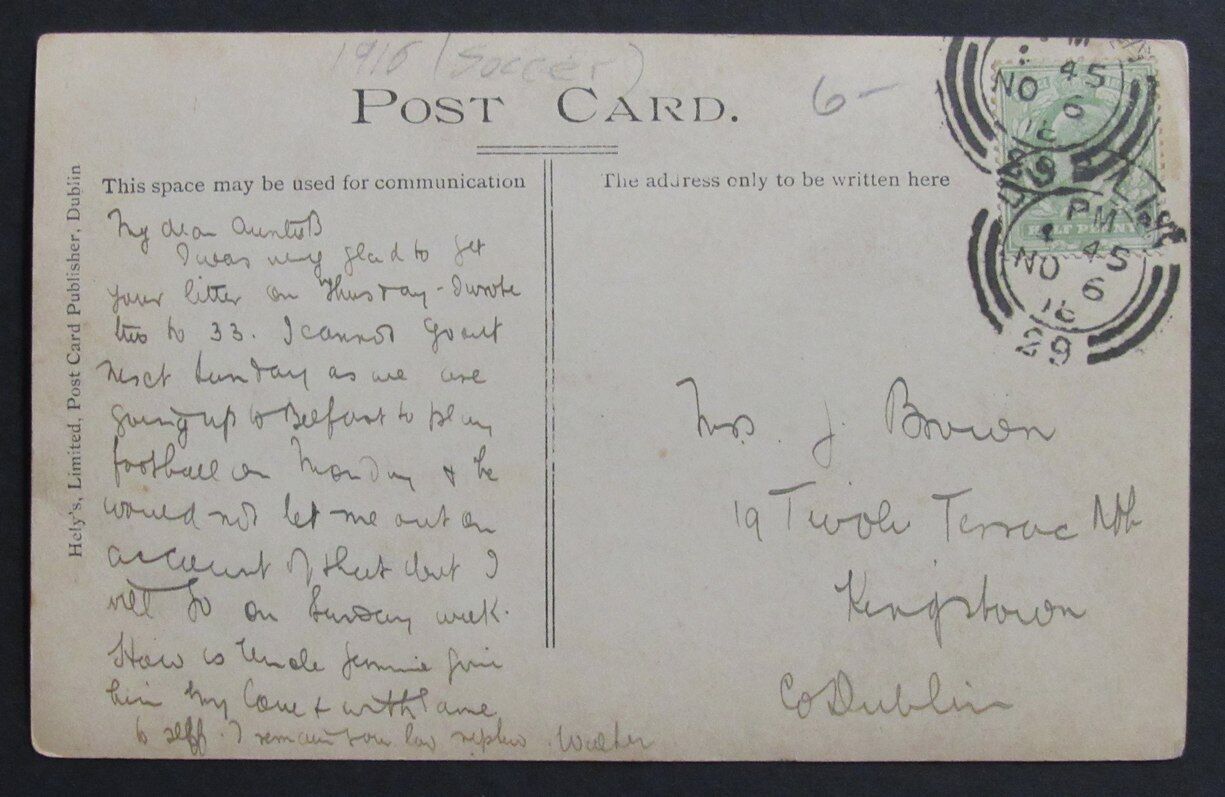 1916 (Soccer)
POST CARD.
6-
PM
NO 45
6
16
29
HALF PENNY
PM
NO 45
6
16
29
Hely's, Limited, Post Card Publisher, Dublin
This space may be used for communication
The address only to be written here
My dear Auntie B
I was very glad to get
your litter on Thursday - I wrote
this to 33. I cannot go out
next Sunday as we are
going up to Belfast to play
football on Monday & he
would not let me out on
account of that but I
will go on Sunday week.
How is Uncle Jimmie give
him my love & with same
to self. I remain your lov nephew. Walter
Mrs. J. Brown
19 Tivoli Terrace Nth
Kingstown
Co Dublin